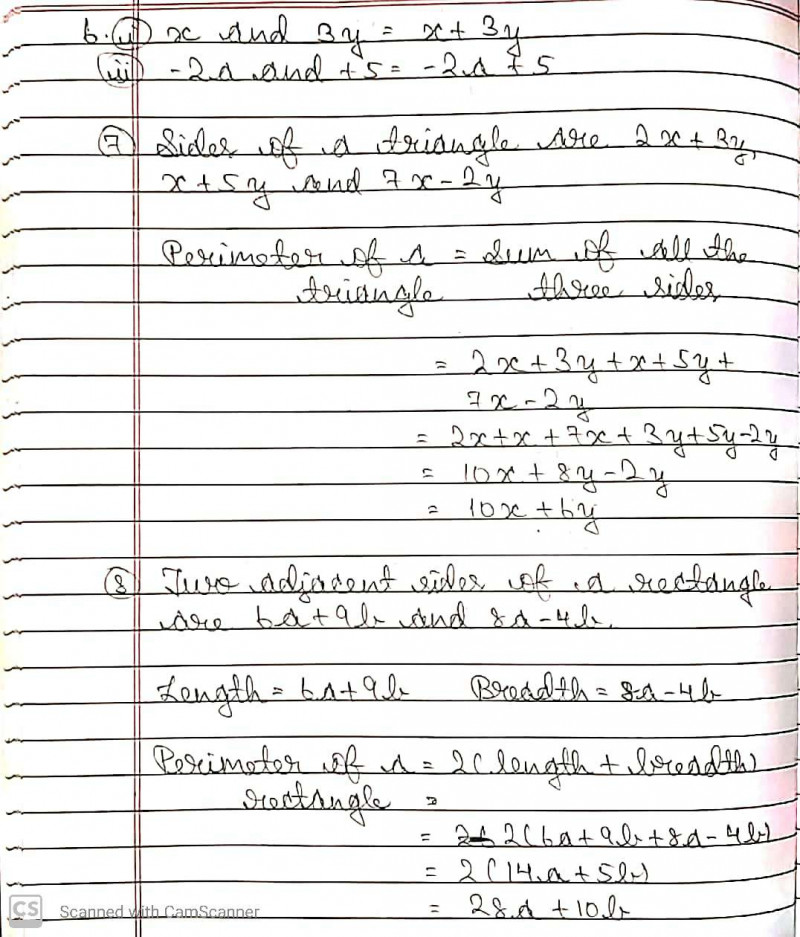 6. (ii) x and 3y = x + 3y
(iii) -2a and +5 = -2a + 5
(7) Sides of a triangle are 2x + 3y,
x + 5y and 7x - 2y
Perimeter of a = Sum of all the
triangle three sides
= 2x + 3y + x + 5y +
7x - 2y
= 2x + x + 7x + 3y + 5y - 2y
= 10x + 8y - 2y
= 10x + 6y
(8) Two adjacent sides of a rectangle
are 6a + 9b and 8a - 4b.
Length = 6a + 9b Breadth = 8a - 4b
Perimeter of a = 2(length + breadth)
rectangle =
= 2(6a + 9b + 8a - 4b)
= 2(14a + 5b)
= 28a + 10b
CS Scanned with CamScanner